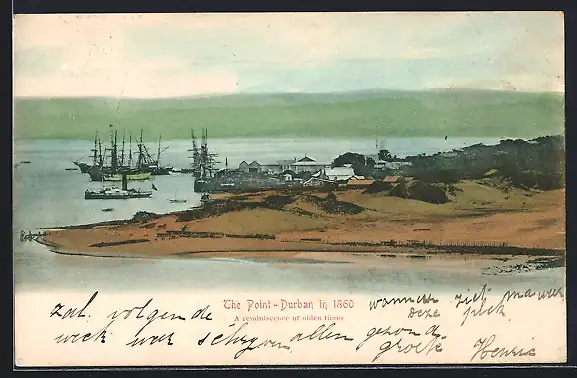 The Point - Durban in 1860
A reminiscence of olden times
zal volgende
week wat schryven
allen gezond
groete
Henrie
deze
plek